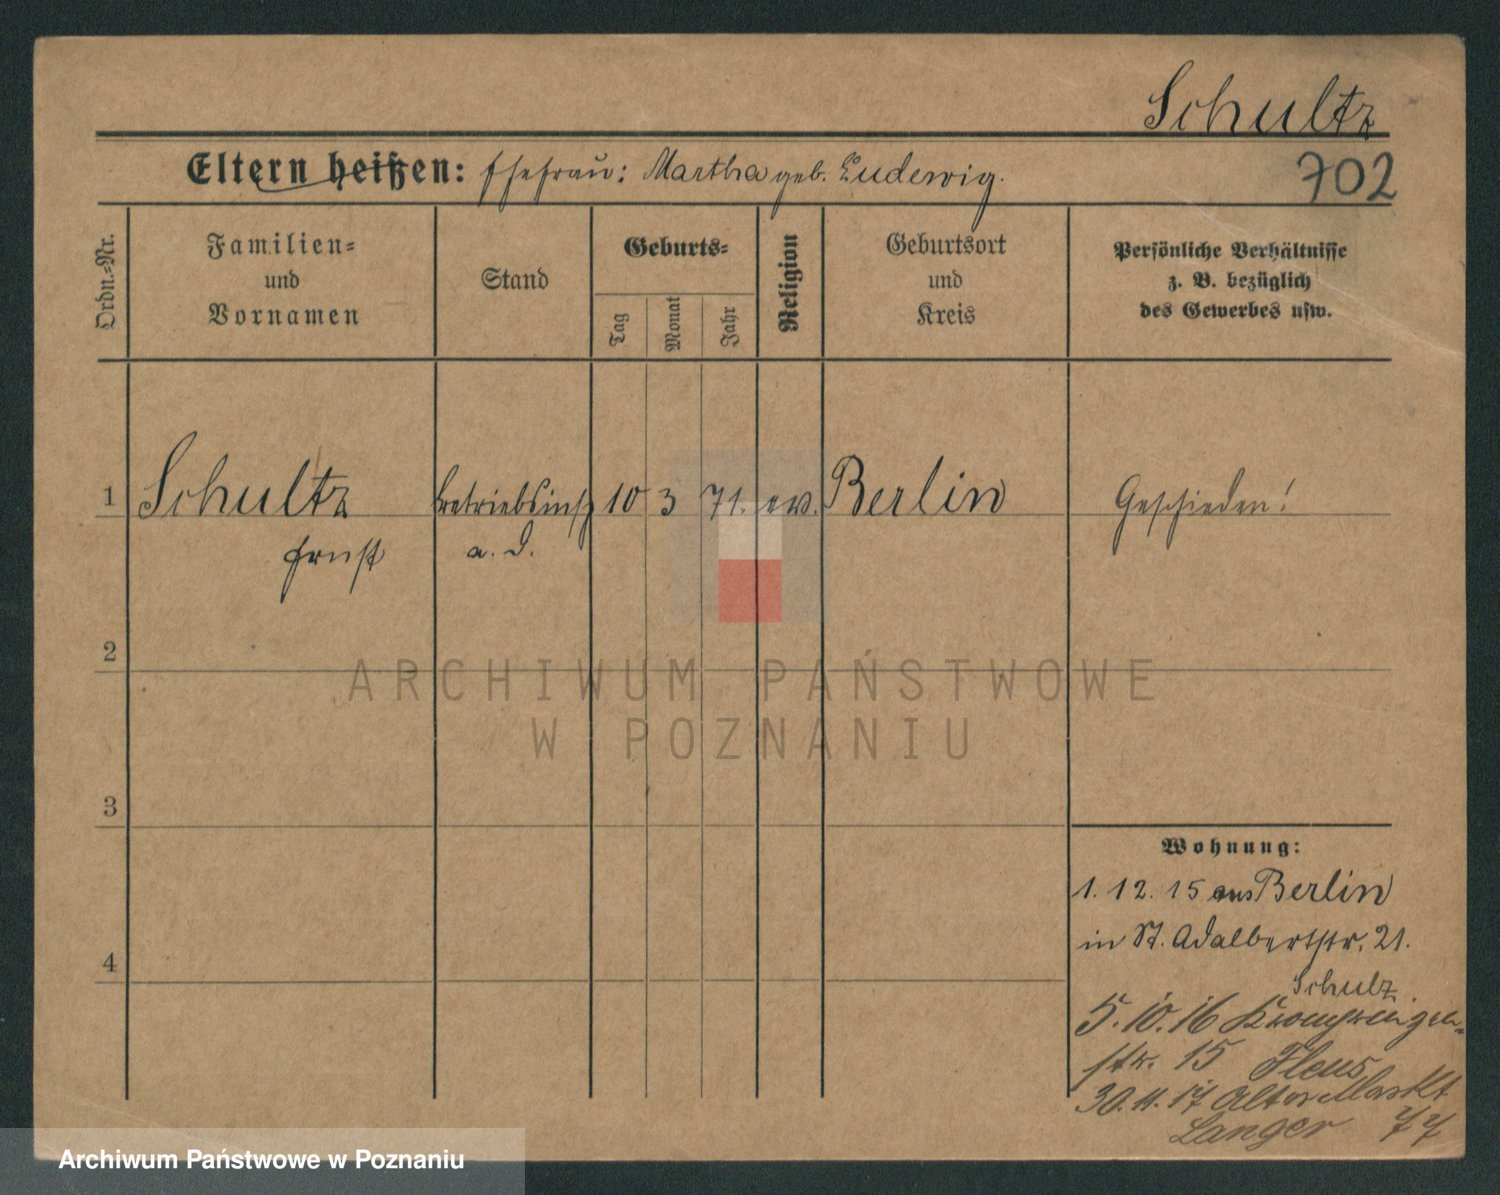 Schultz
Eltern heißen: Ehefrau: Martha geb. Ludewig.
702
Ordn.-Nr.
Familien-
und
Vornamen
Stand
Geburts-
Tag
Monat
Jahr
Religion
Geburtsort
und
Kreis
Persönliche Verhältnisse
z. B. bezüglich
des Gewerbes usw.
1 Schultz Betriebsinsp 10 3 71. ev. Berlin Geschieden!
Ernst a. D.
2
3
4
Wohnung:
1. 12. 15 aus Berlin
in St. Adalbertstr. 21.
Schulz
5. 10. 16 Kronprinzen-
str. 15
30. 11. 17 Alter Markt
Langer 77
ARCHIWUM PAŃSTWOWE
W POZNANIU
Archiwum Państwowe w Poznaniu